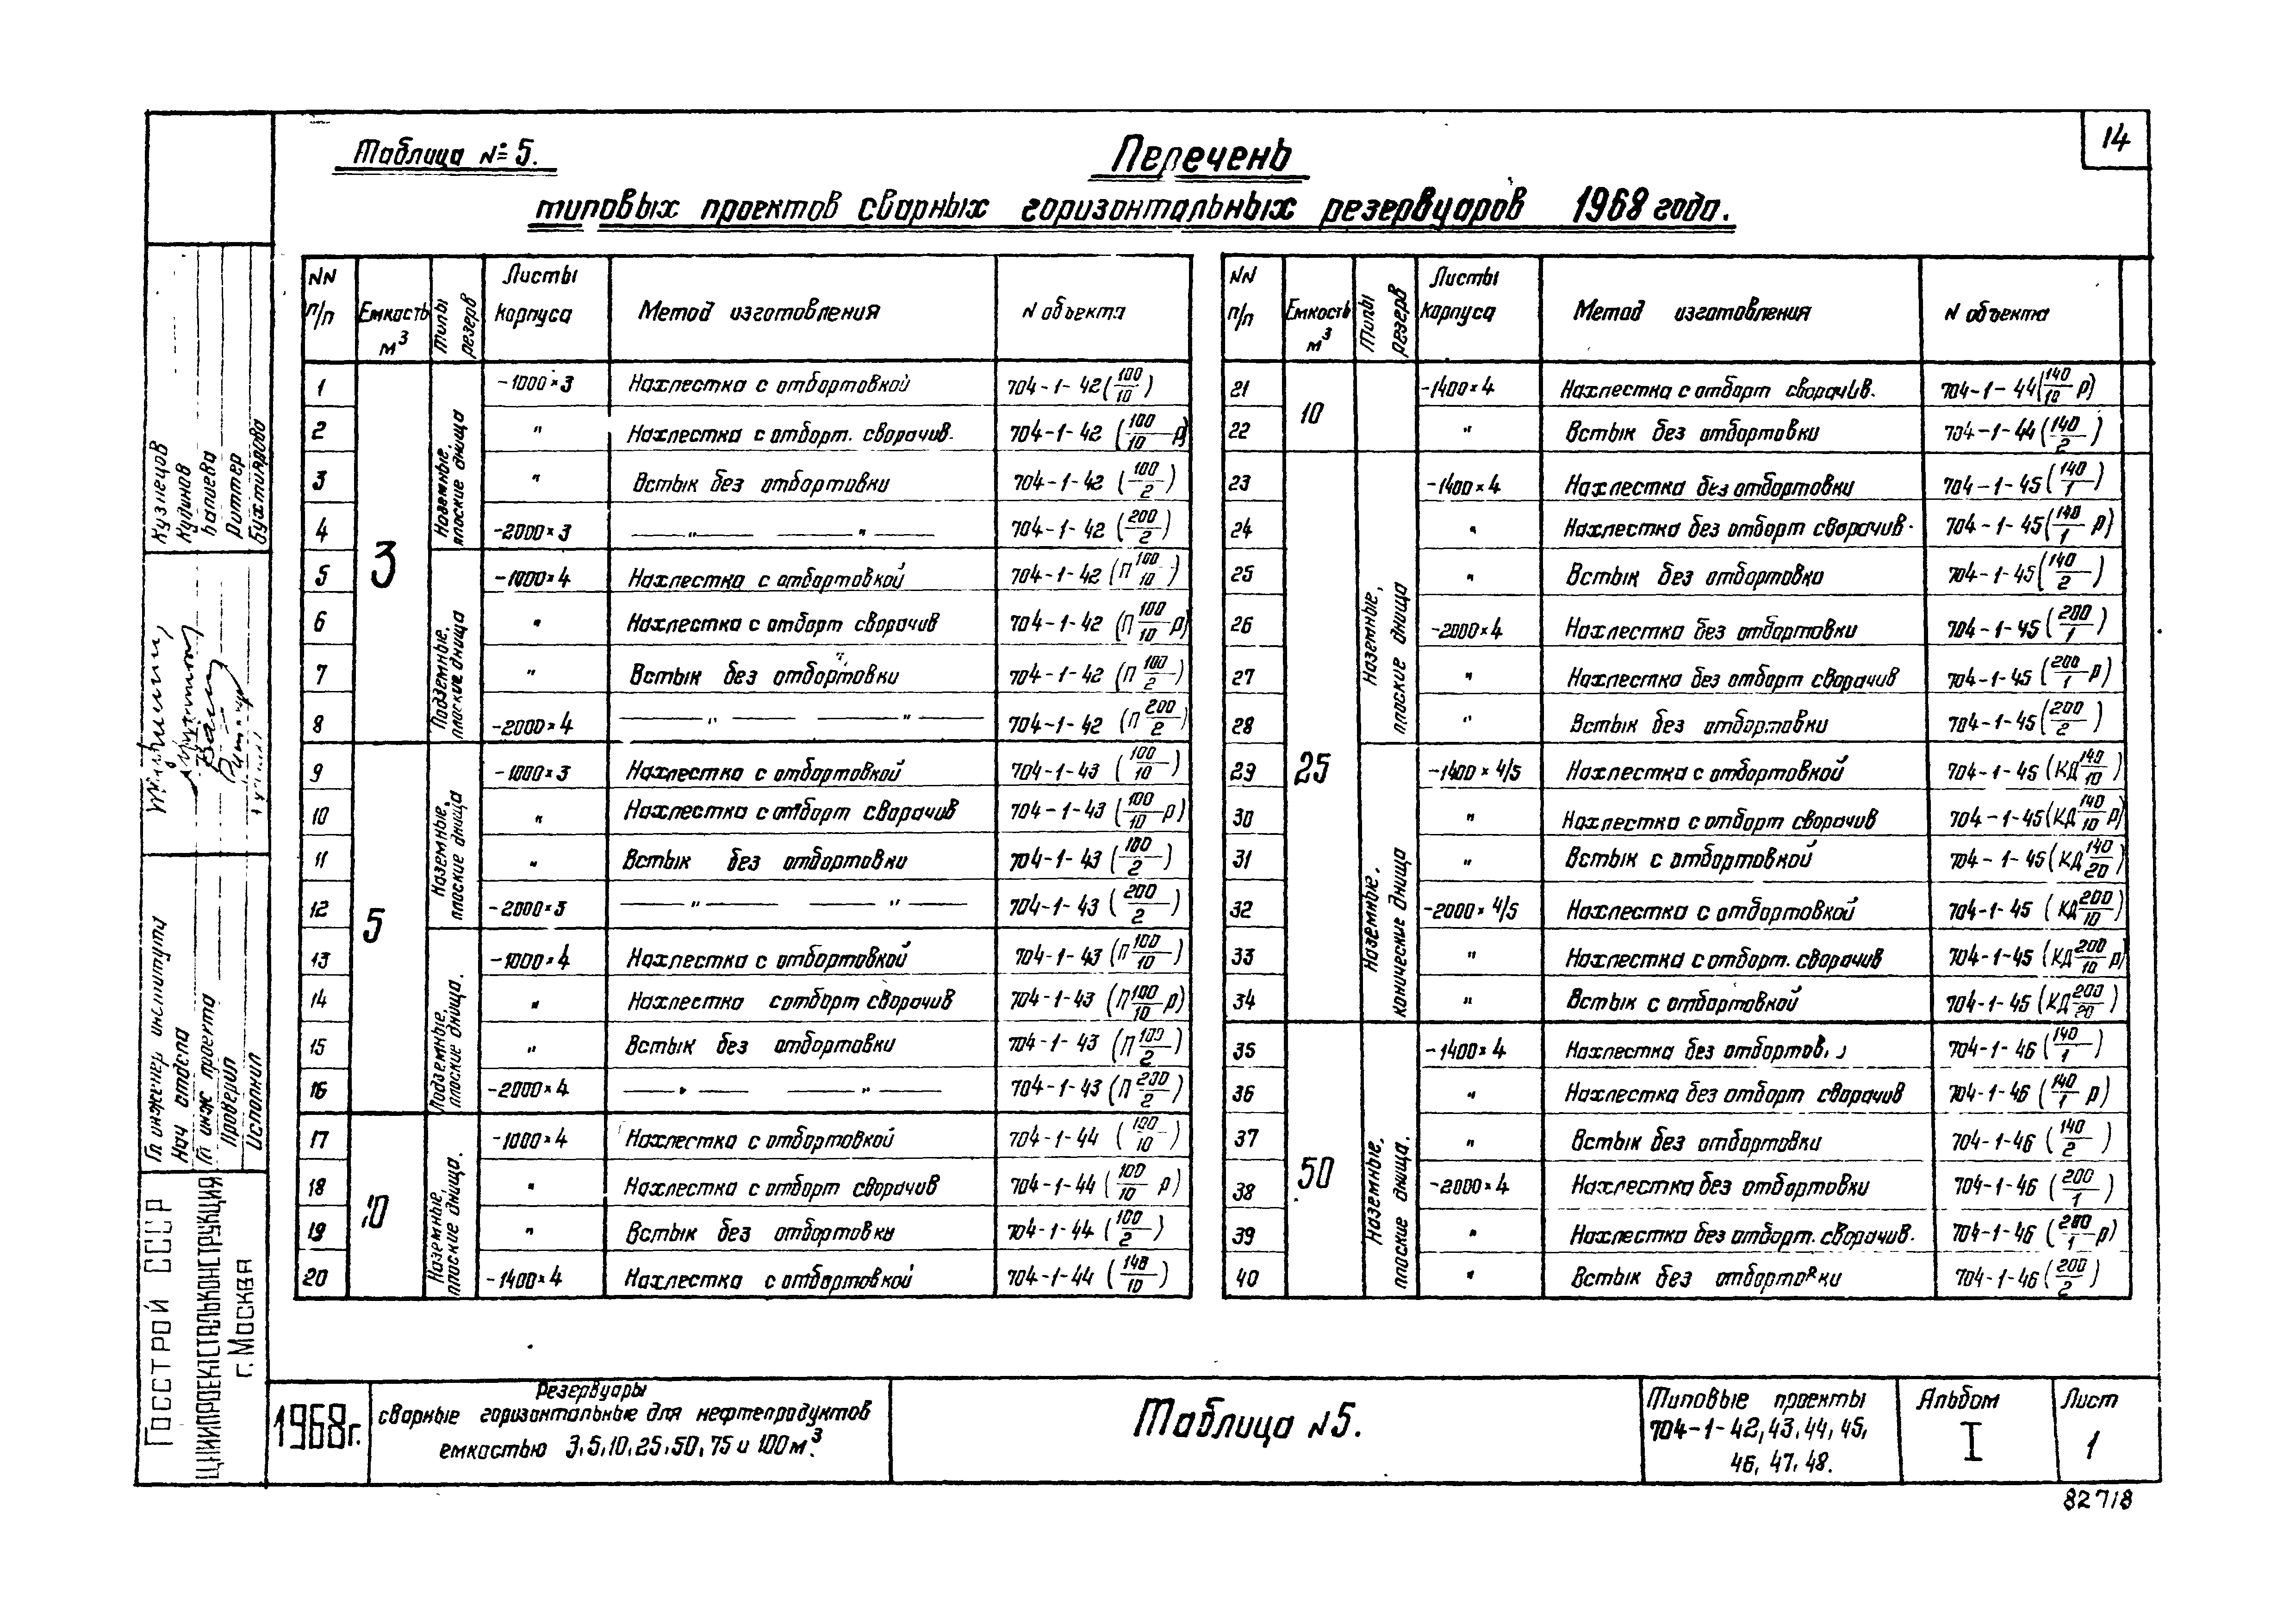 14
Таблица №5.
Перечень
типовых проектов сварных горизонтальных резервуаров 1968 года.
NN п/п | Емкость м³ | Типы резерв | Листы корпуса | Метод изготовления | N объекта
3
Наземные, плоские днища
1 | -1000×3 | Нахлестка с отбортовкой | 704-1-42 (100/10)
2 | " | Нахлестка с отборт. сворачив. | 704-1-42 (100/10 р)
3 | " | Встык без отбортовки | 704-1-42 (100/2)
4 | -2000×3 | —"— —"— | 704-1-42 (200/2)
Подземные, плоские днища
5 | -1000×4 | Нахлестка с отбортовкой | 704-1-42 (П 100/10)
6 | " | Нахлестка с отборт сворачив | 704-1-42 (П 100/10 р)
7 | " | Встык без отбортовки | 704-1-42 (П 100/2)
8 | -2000×4 | —"— —"— | 704-1-42 (П 200/2)
5
Наземные, плоские днища
9 | -1000×3 | Нахлестка с отбортовкой | 704-1-43 (100/10)
10 | " | Нахлестка с отборт сворачив | 704-1-43 (100/10 р)
11 | " | Встык без отбортовки | 704-1-43 (100/2)
12 | -2000×3 | —"— —"— | 704-1-43 (200/2)
Подземные, плоские днища.
13 | -1000×4 | Нахлестка с отбортовкой | 704-1-43 (П 100/10)
14 | " | Нахлестка с отборт сворачив | 704-1-43 (П 100/10 р)
15 | " | Встык без отбортовки | 704-1-43 (П 100/2)
16 | -2000×4 | —"— —"— | 704-1-43 (П 200/2)
10
Наземные, плоские днища.
17 | -1000×4 | Нахлестка с отбортовкой | 704-1-44 (100/10)
18 | " | Нахлестка с отборт сворачив | 704-1-44 (100/10 р)
19 | " | Встык без отбортовки | 704-1-44 (100/2)
20 | -1400×4 | Нахлестка с отбортовкой | 704-1-44 (140/10)
NN п/п | Емкость м³ | Типы резерв | Листы корпуса | Метод изготовления | N объекта
10
21 | -1400×4 | Нахлестка с отборт сворачив. | 704-1-44 (140/10 р)
22 | " | Встык без отбортовки | 704-1-44 (140/2)
25
Наземные, плоские днища
23 | -1400×4 | Нахлестка без отбортовки | 704-1-45 (140/1)
24 | " | Нахлестка без отборт сворачив. | 704-1-45 (140/1 р)
25 | " | Встык без отбортовки | 704-1-45 (140/2)
26 | -2000×4 | Нахлестка без отбортовки | 704-1-45 (200/1)
27 | " | Нахлестка без отборт сворачив | 704-1-45 (200/1 р)
28 | " | Встык без отбортовки | 704-1-45 (200/2)
Наземные. конические днища
29 | -1400×4/5 | Нахлестка с отбортовкой | 704-1-45 (КД 140/10)
30 | " | Нахлестка с отборт сворачив | 704-1-45 (КД 140/10 р)
31 | " | Встык с отбортовкой | 704-1-45 (КД 140/20)
32 | -2000×4/5 | Нахлестка с отбортовкой | 704-1-45 (КД 200/10)
33 | " | Нахлестка с отборт. сворачив | 704-1-45 (КД 200/10 р)
34 | " | Встык с отбортовкой | 704-1-45 (КД 200/20)
50
Наземные, плоские днища.
35 | -1400×4 | Нахлестка без отбортов. | 704-1-46 (140/1)
36 | " | Нахлестка без отборт сворачив | 704-1-46 (140/1 р)
37 | " | Встык без отбортовки | 704-1-46 (140/2)
38 | -2000×4 | Нахлестка без отбортовки | 704-1-46 (200/1)
39 | " | Нахлестка без отборт. сворачив. | 704-1-46 (200/1 р)
40 | " | Встык без отбортовки | 704-1-46 (200/2)
Гл инженер института Кузнецов
Нач отдела Кулинов
Гл инж проекта
Проверил Риттер
Исполнил Бухтиярова
Госстрой СССР
ЦНИИПРОЕКТСТАЛЬКОНСТРУКЦИЯ
г. Москва
1968г.
Резервуары
сварные горизонтальные для нефтепродуктов
емкостью 3,5,10,25,50,75 и 100 м³.
Таблица N5.
Типовые проекты
704-1-42,43,44,45,
46, 47, 48.
Альбом
I
Лист
1
82718